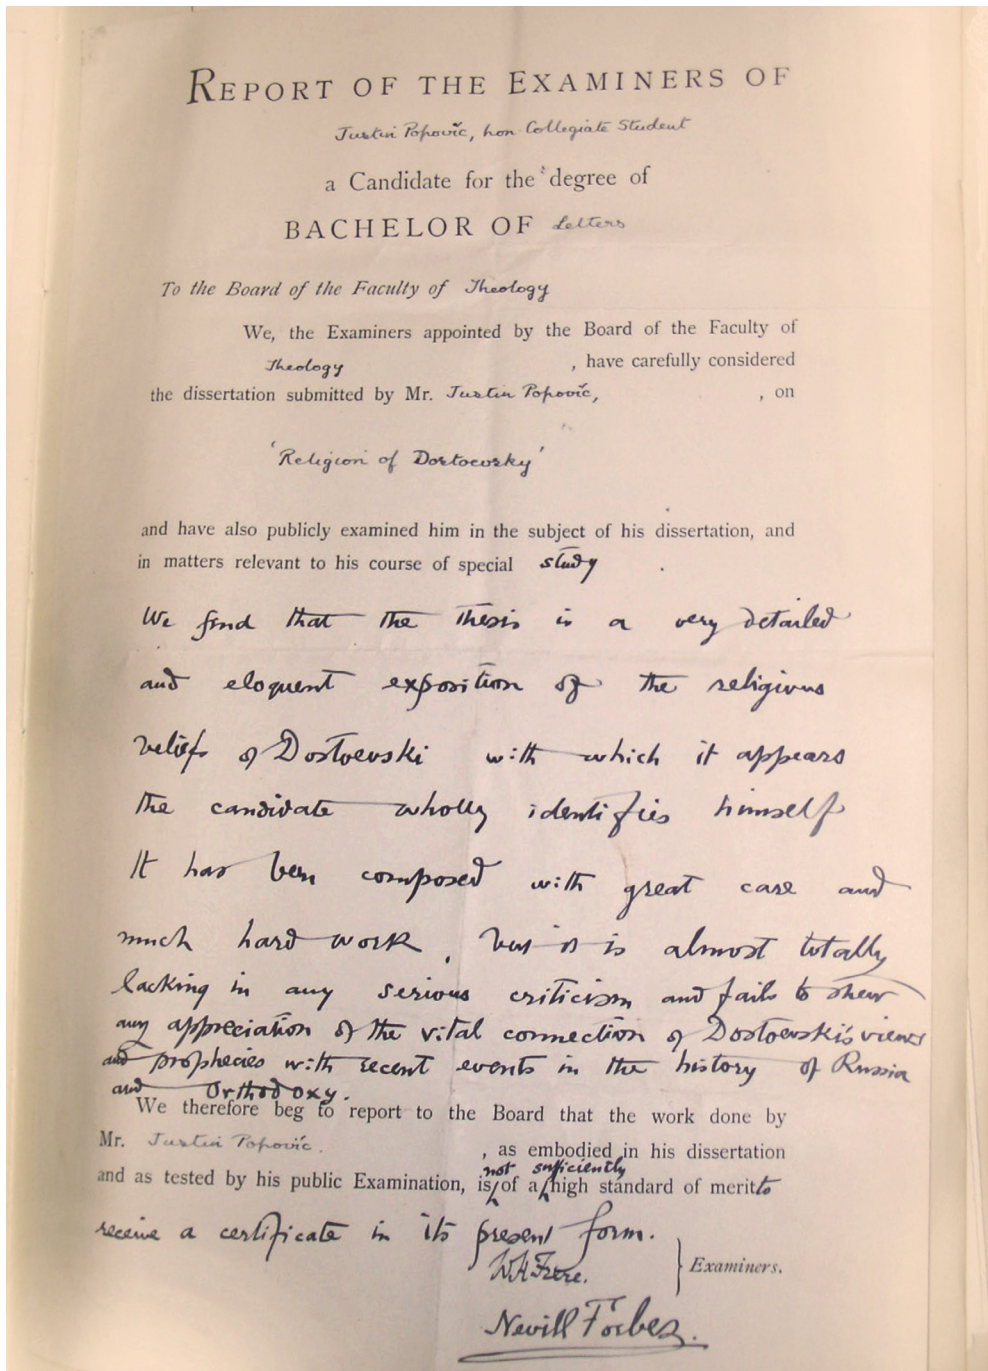 REPORT OF THE EXAMINERS OF
Justin Popovič, non-Collegiate Student
a Candidate for the degree of
BACHELOR OF Letters
To the Board of the Faculty of Theology
We, the Examiners appointed by the Board of the Faculty of
Theology , have carefully considered
the dissertation submitted by Mr. Justin Popovič, , on
'Religion of Dostoevsky'
and have also publicly examined him in the subject of his dissertation, and
in matters relevant to his course of special study .
We find that the thesis is a very detailed
and eloquent exposition of the religious
beliefs of Dostoevski with which it appears
the candidate wholly identifies himself
It has been composed with great care and
much hard work, but it is almost totally
lacking in any serious criticism and fails to shew
any appreciation of the vital connection of Dostoevski's views
and prophecies with recent events in the history of Russia
and Orthodoxy.
We therefore beg to report to the Board that the work done by
Mr. Justin Popovič. , as embodied in his dissertation
not sufficiently
and as tested by his public Examination, is of a high standard of merit to
receive a certificate in its present form.
W H Frere.
Examiners.
Nevill Forbes.